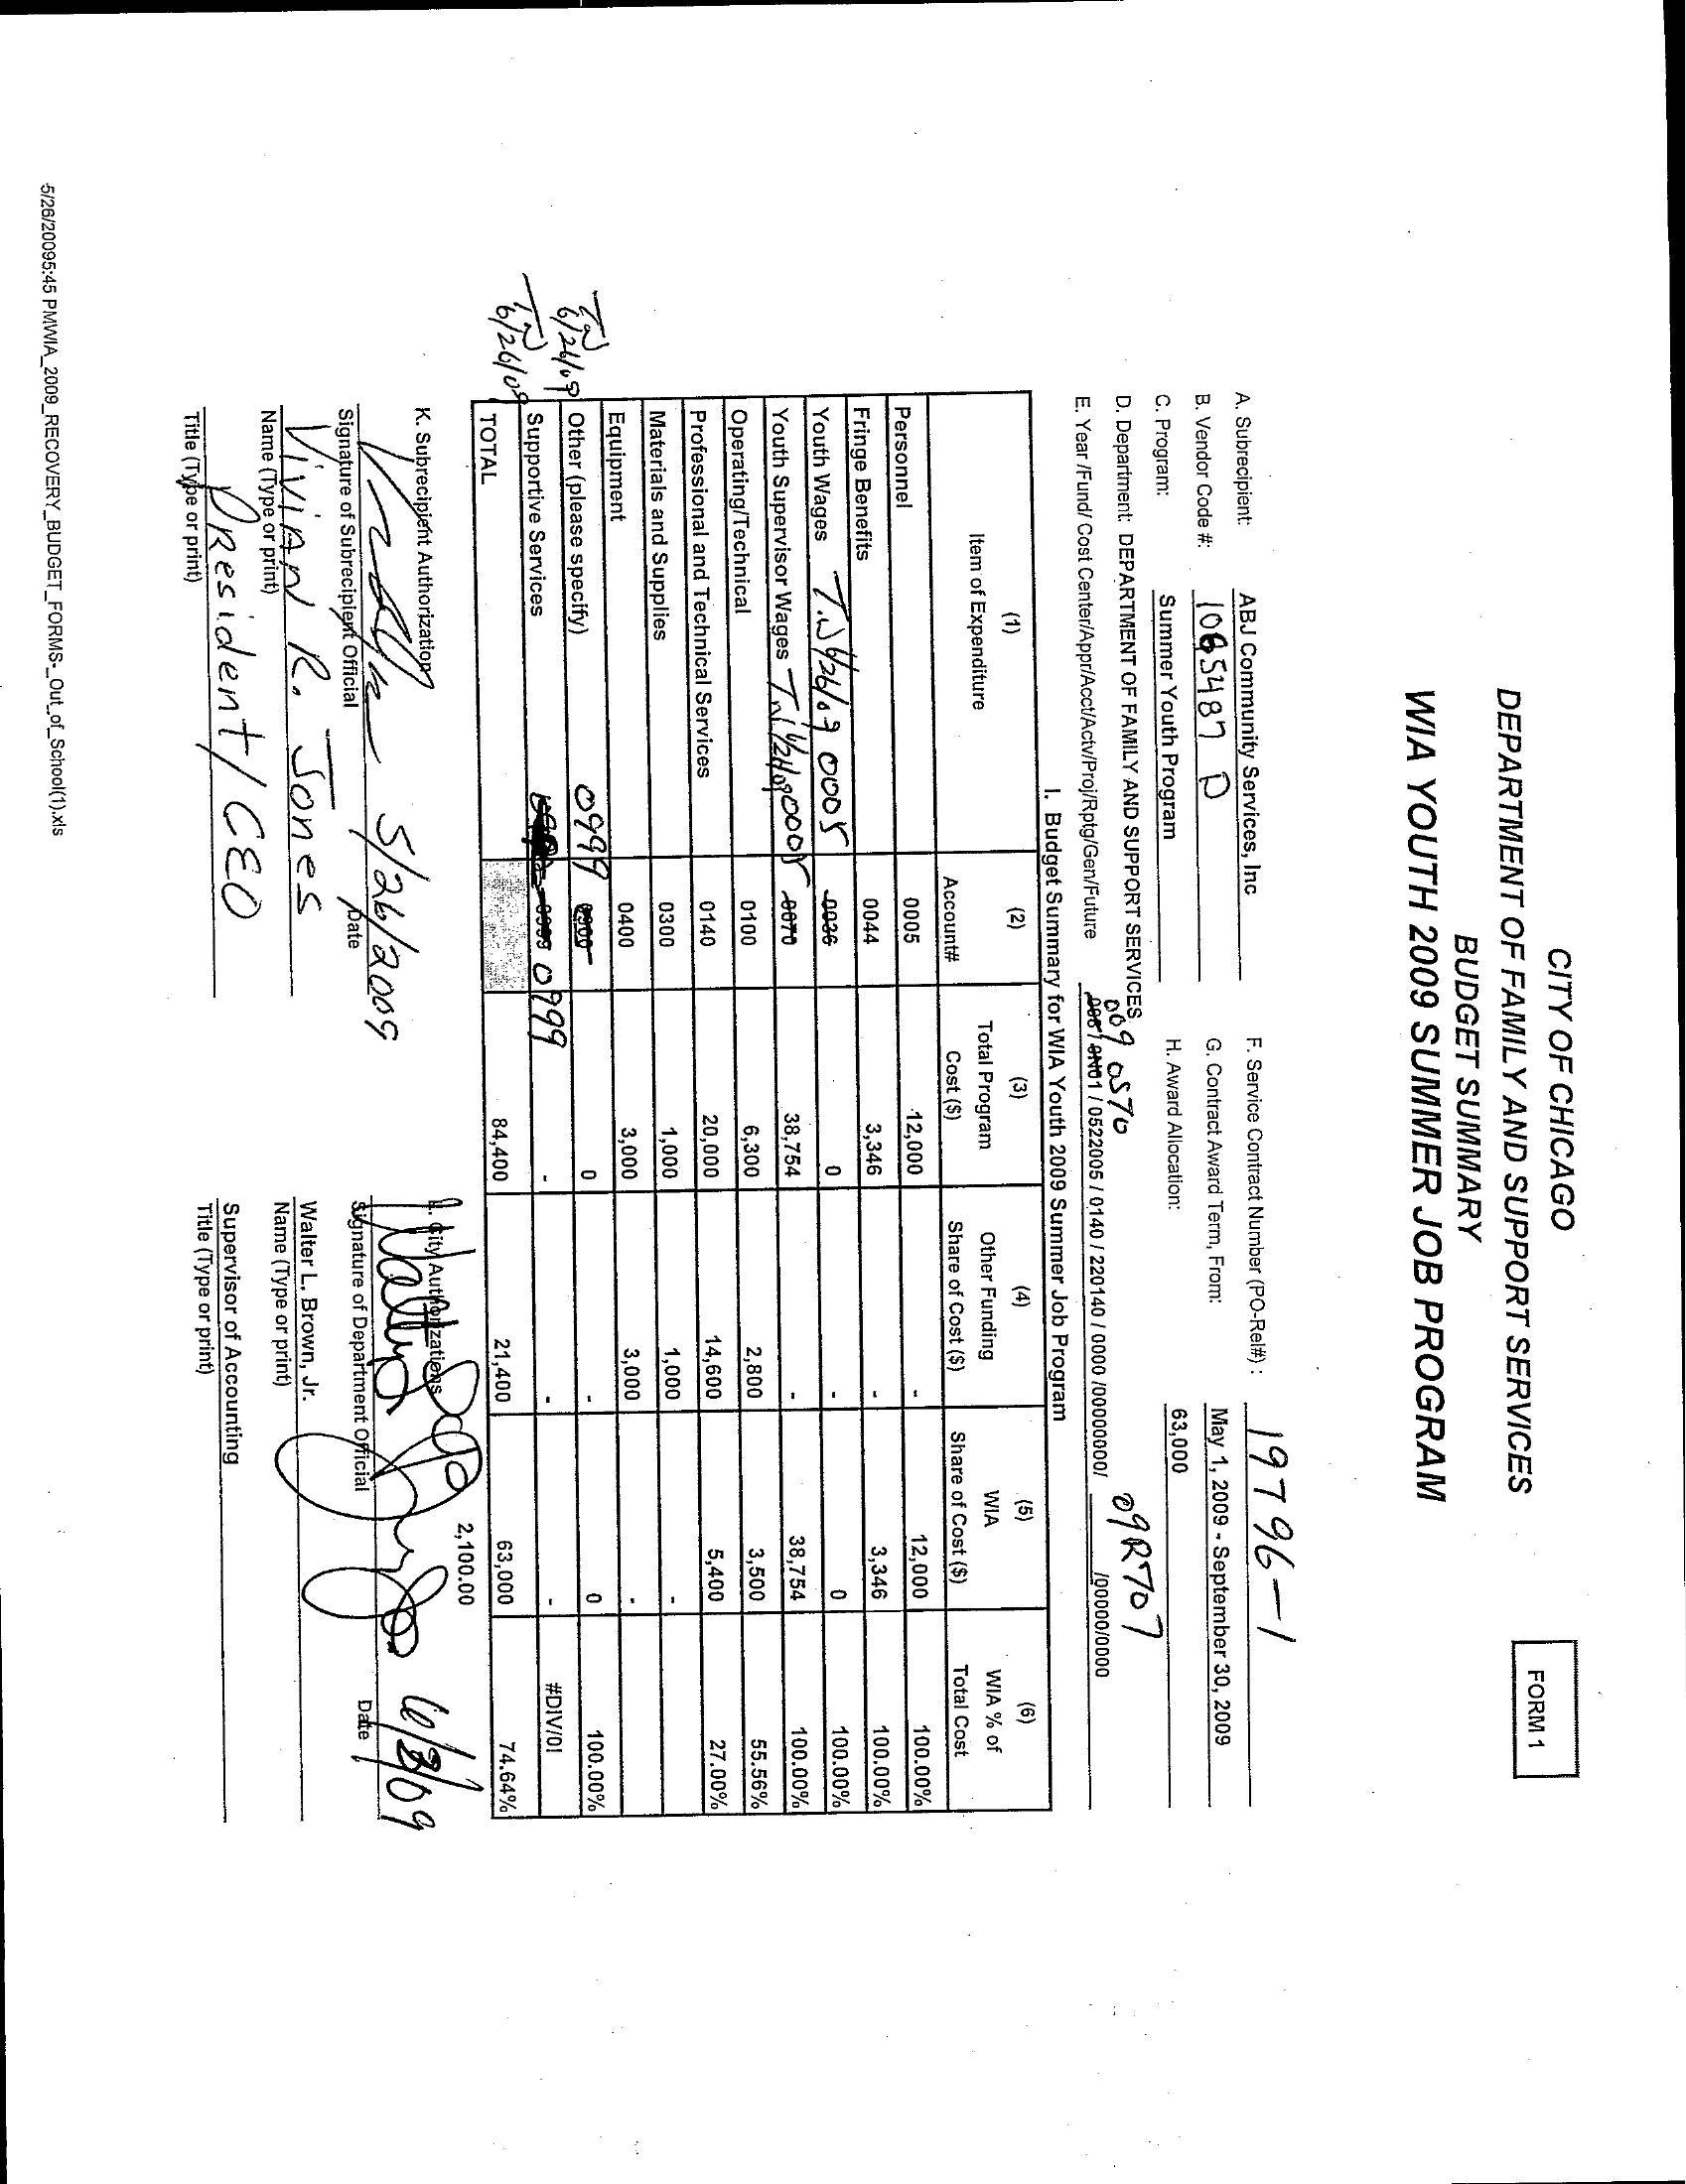 CITY OF CHICAGO
DEPARTMENT OF FAMILY AND SUPPORT SERVICES
BUDGET SUMMARY
WIA YOUTH 2009 SUMMER JOB PROGRAM
FORM 1
A. Subrecipient: ABJ Community Services, Inc
B. Vendor Code #: 1065487 D
C. Program: Summer Youth Program
D. Department: DEPARTMENT OF FAMILY AND SUPPORT SERVICES
F. Service Contract Number (PO-Rel#) : 19796-1
G. Contract Award Term, From: May 1, 2009 - September 30, 2009
H. Award Allocation: 63,000
009 0570 09R707
E. Year /Fund/ Cost Center/Appr/Acct/Actv/Proj/Rptg/Gen/Future / 0522005 / 0140 / 220140 / 0000 /00000000/ /00000/0000
I. Budget Summary for WIA Youth 2009 Summer Job Program
(1) (2) (3) (4) (5) (6)
Item of Expenditure Account# Total Program Cost ($) Other Funding Share of Cost ($) WIA Share of Cost ($) WIA % of Total Cost
Personnel 0005 12,000 - 12,000 100.00%
Fringe Benefits 0044 3,346 - 3,346 100.00%
Youth Wages T.W 6/26/09 0005 0036 0 - 0 100.00%
Youth Supervisor Wages T.W 6/26/09 0005 0070 38,754 - 38,754 100.00%
Operating/Technical 0100 6,300 2,800 3,500 55.56%
Professional and Technical Services 0140 20,000 14,600 5,400 27.00%
Materials and Supplies 0300 1,000 1,000 -
Equipment 0400 3,000 3,000 -
TW 6/26/09 Other (please specify) 0999 0 - 0 100.00%
TW 6/26/09 Supportive Services 0999 0999 - - - #DIV/0!
TOTAL 84,400 21,400 63,000 74.64%
2,100.00
K. Subrecipient Authorization
5/26/2009
Signature of Subrecipient Official Date
Vivian R. Jones
Name (Type or print)
President/CEO
Title (Type or print)
L. City Authorizations
6/3/09
Signature of Department Official Date
Walter L. Brown, Jr.
Name (Type or print)
Supervisor of Accounting
Title (Type or print)
5/26/20095:45 PMWIA_2009_RECOVERY_BUDGET_FORMS-_Out_of_School(1).xls